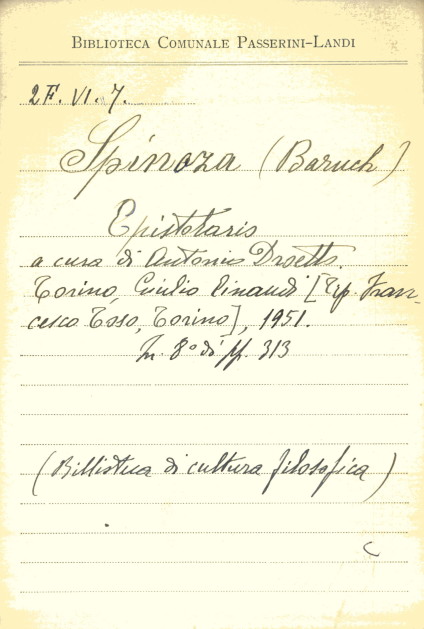 BIBLIOTECA COMUNALE PASSERINI-LANDI
2F. VI. 7.
Spinoza (Baruch)
Epistolario
a cura di Antonio Droetto.
Torino, Giulio Einaudi [Tip. Fran-
cesco Toso, Torino], 1951.
In 8° di pp. 313
(Biblioteca di cultura filosofica)
C